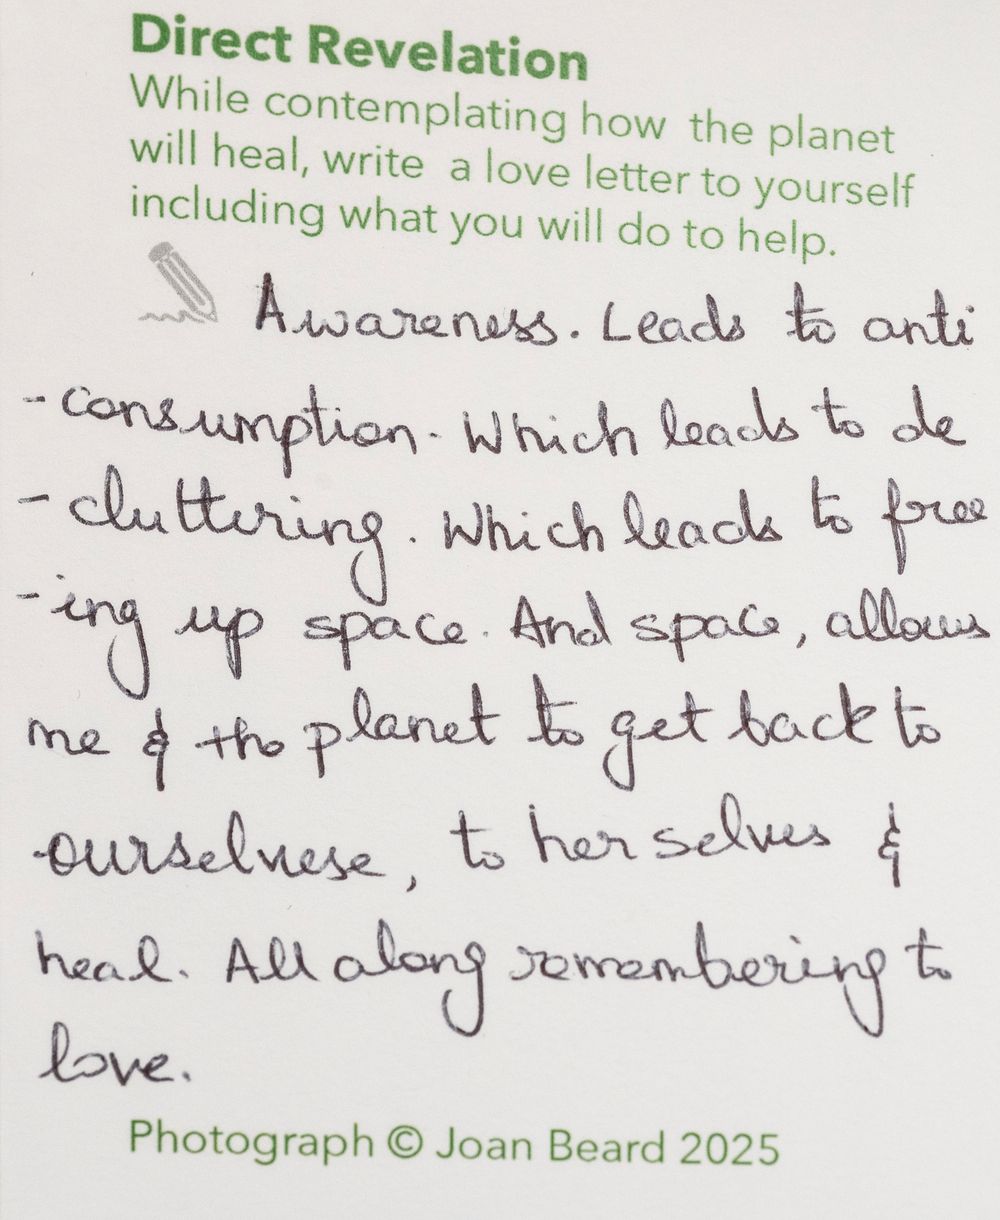 Direct Revelation
While contemplating how the planet
will heal, write a love letter to yourself
including what you will do to help.
Awareness. Leads to anti
-consumption. Which leads to de
-cluttering. Which leads to free
-ing up space. And space, allows
me & the planet to get back to
ourselvese, to her selves &
heal. All along remembering to
love.
Photograph © Joan Beard 2025